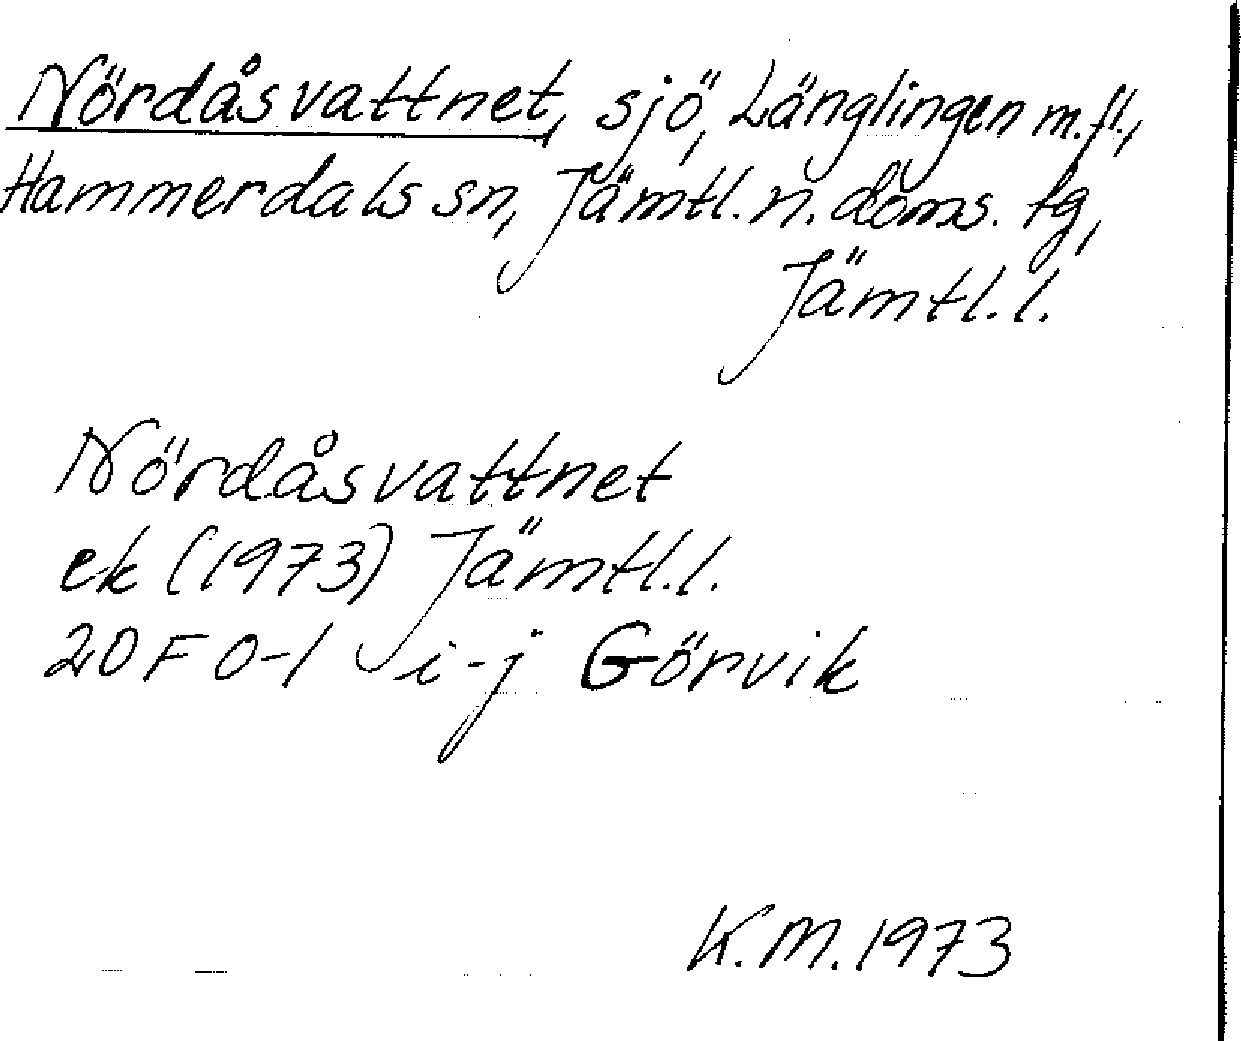 Nördåsvattnet, sjö, Länglingen m.fl.,
Hammerdals sn, Jämtl. n. doms. tg,
Jämtl. l.
Nördåsvattnet
ek (1973) Jämtl. l.
20F 0-1 i-j Görvik
K.M. 1973